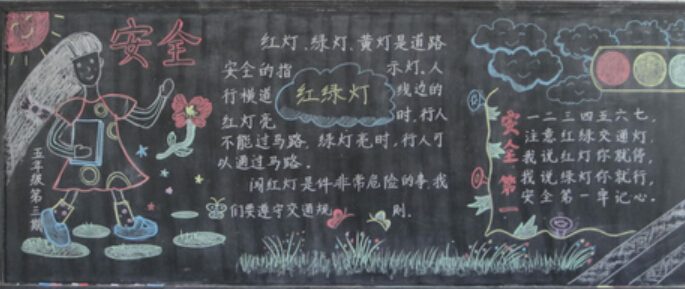 安全
五年级第三期
红灯、绿灯、黄灯是道路
安全的指示灯。人
行横道线边的
红灯亮时，行人
不能过马路。绿灯亮时，行人可
以通过马路。
闯红灯是件非常危险的事，我
们要遵守交通规则。
红绿灯
安全第一
一二三四五六七，
注意红绿交通灯，
我说红灯你就停，
我说绿灯你就行，
安全第一牢记心。